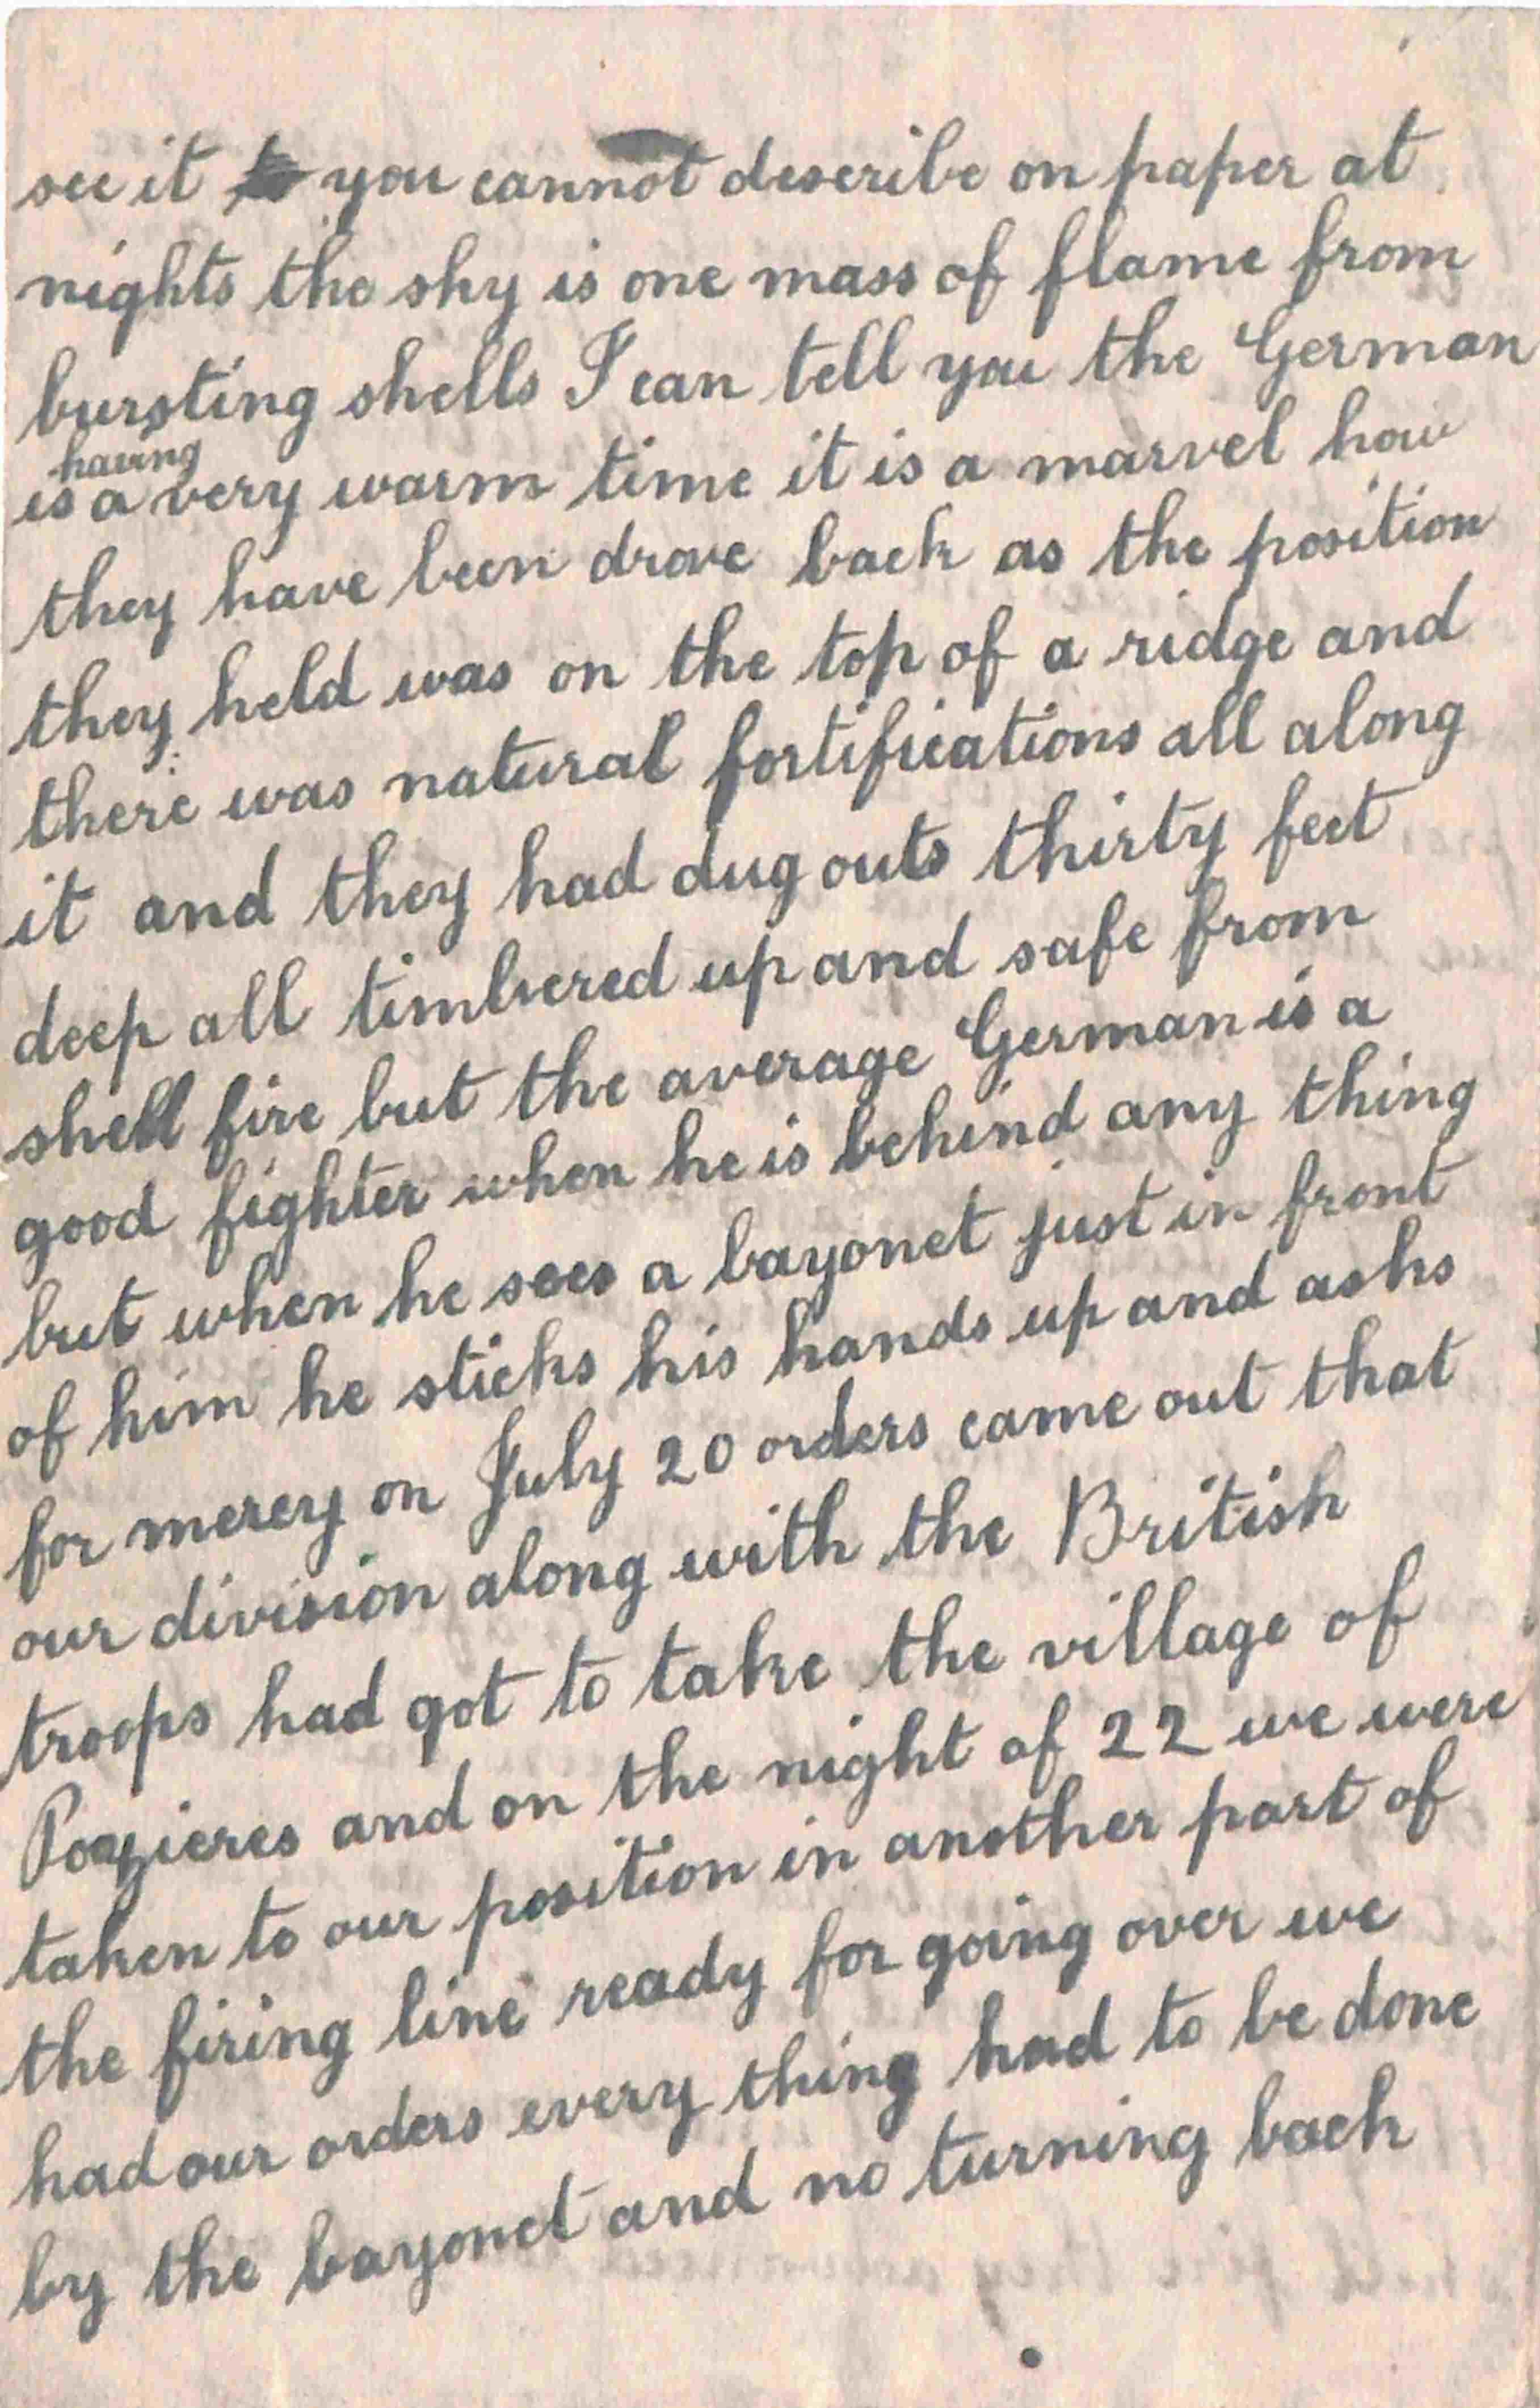 see it you cannot describe on paper at
nights the sky is one mass of flame from
bursting shells I can tell you the German
having
is a very warm time it is a marvel how
they have been drove back as the position
they held was on the top of a ridge and
there was natural fortifications all along
it and they had dug outs thirty feet
deep all timbered up and safe from
shell fire but the average German is a
good fighter when he is behind any thing
but when he sees a bayonet just in front
of him he sticks his hands up and asks
for mercy on July 20 orders came out that
our division along with the British
troops had got to take the village of
Pozieres and on the night of 22 we were
taken to our position in another part of
the firing line ready for going over we
had our orders every thing had to be done
by the bayonet and no turning back